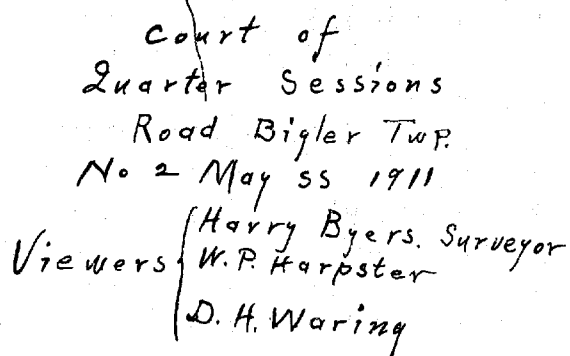 Court of
Quarter Sessions
Road Bigler Twp.
No 2 May ss 1911
Viewers
Harry Byers. Surveyor
W. P. Harpster
D. H. Waring